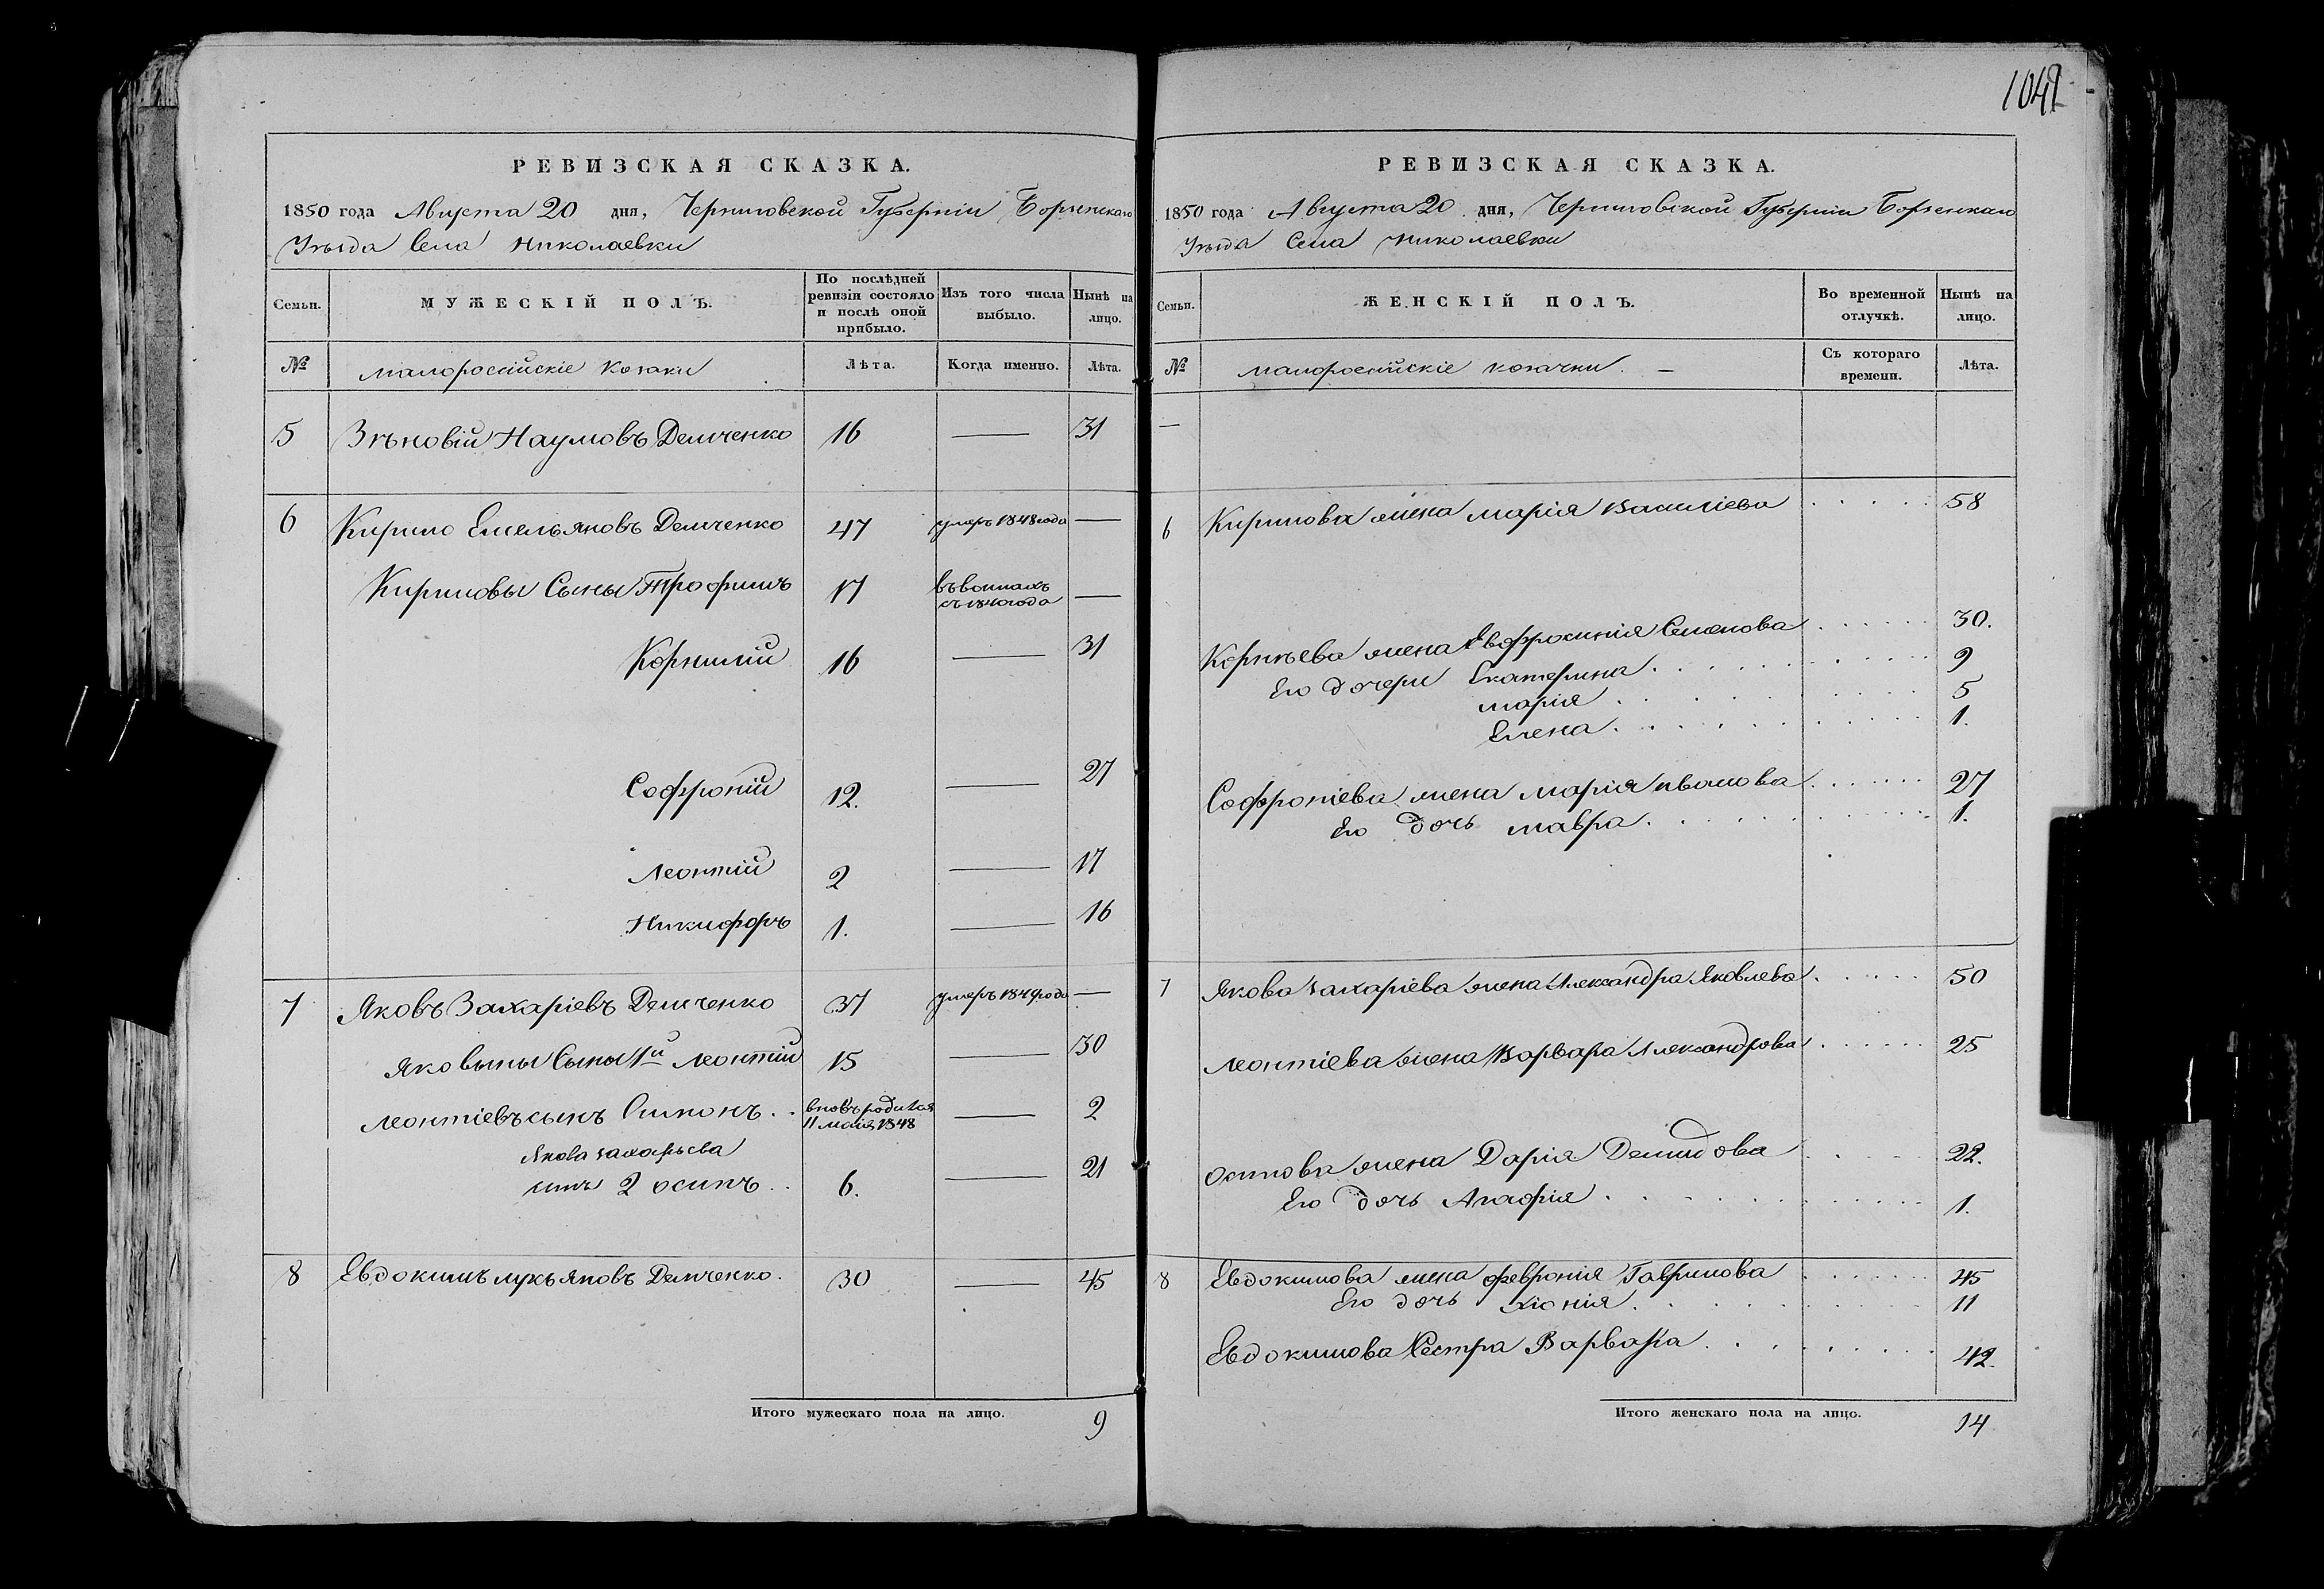 1041
РЕВИЗСКАЯ СКАЗКА.
1850 года Августа 20 дня, Черниговской Губерніи Борзенскаго
Уѣзда Села Николаевки
Семьи.
МУЖЕСКІЙ ПОЛЪ.
По послѣдней
ревизіи состояло
и послѣ оной
прибыло.
Изъ того числа
выбыло.
Нынѣ на
лицо.
№
малороссійскіе козаки
Лѣта.
Когда именно.
Лѣта.
5 Зѣновій Наумовъ Демченко 16 — 31
6 Кирило Емельяновъ Демченко 47 умеръ 1848 года —
Кириловы Сыны Трофимъ 17 въ воинахъ —
съ 1840 года
Корнилій 16 — 31
Софроній 12. — 27
Леонтій 2 — 17
Никифоръ 1. — 16
7 Яковъ Захаріевъ Демченко 37 умеръ 1849 года —
Яковыны Сыны 1й Леонтій 15 — 30
Леонтіевъ сынъ Симонъ . . вновь родился — 2
11 мая 1848
Якова захарьева
сынъ 2 осипъ . . 6. — 21
8 Евдокимъ лукьяновъ Демченко. 30 — 45
Итого мужескаго пола на лицо. 9
РЕВИЗСКАЯ СКАЗКА.
1850 года Августа 20 дня, Черниговской Губерніи Борзенскаго
Уѣзда Села Николаевки
Семьи.
ЖЕНСКІЙ ПОЛЪ.
Во временной
отлучкѣ.
Нынѣ на
лицо.
№
малороссійскіе козачки. —
Съ котораго
времени.
Лѣта.
—
6 Кирилова жена марія Василіева . . . . . 58
Корнѣева жена Евфросинія Семенова . . . . . . 30.
Его дочери Екатерина . . . . . . . . . 9
марія . . . . . . . 5
Елена . . . . . . . . . 1.
Софроніева жена марія иванова . . . . . . 27
Его дочь мавра . . . . . . . . . . 1.
7 Якова захаріева жена Александра Яковлева . . . . . . 50
Леонтіева жена Варвара Александрова . . . . . . 25
осипова жена Дарія Демидова . . . . 22.
Его дочь Агафія . . . . . . . . . . 1.
8 Евдокимова жена февронія Гаврилова . . . . . . 45
Его дочь хіонія . . . . . . . . . 11
Евдокимова Сестра Варвара . . . . . . . . 42.
Итого женскаго пола на лицо. 14